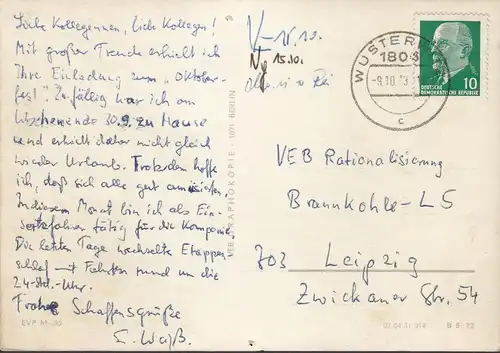 Liebe Kolleginnen, liebe Kollegen!
Mit großer Freude erhielt ich
Ihre Einladung zum „Oktober-
fest“. Zufällig war ich am
Wochenende 30.9. zu Hause
und erhielt daher nicht gleich
wieder Urlaub. Trotzdem hoffe
ich, daß sich alle gut amüsierten.
In diesem Monat bin ich als Ein-
satzfahrer tätig für die Kompanie.
Die letzten Tage wechselte Etappen-
schlaf mit Fahrten rund um die
24-Std.-Uhr.
Frohe Schaffensgrüße
E. Weiß
15.10.
WUSTERWITZ
180
-9.10.
c
DEUTSCHE
DEMOKRATISCHE REPUBLIK
10
VEB Rationalisierung
Braunkohle - L5
703 Leipzig
Zwickauer Str. 54
1071 BERLIN